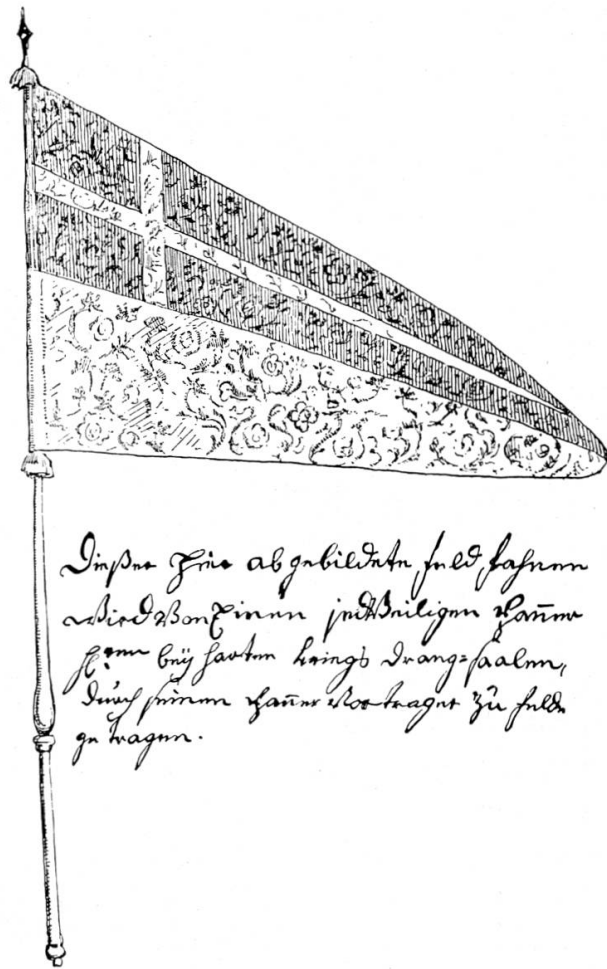 Dießer hier abgebildete feld fahnen
wird Von Einen jedtweiligen Panner
H:ren beÿ harten kriegs drang=saalen,
durch seinen Panner Vortrager zu felde
getragen.